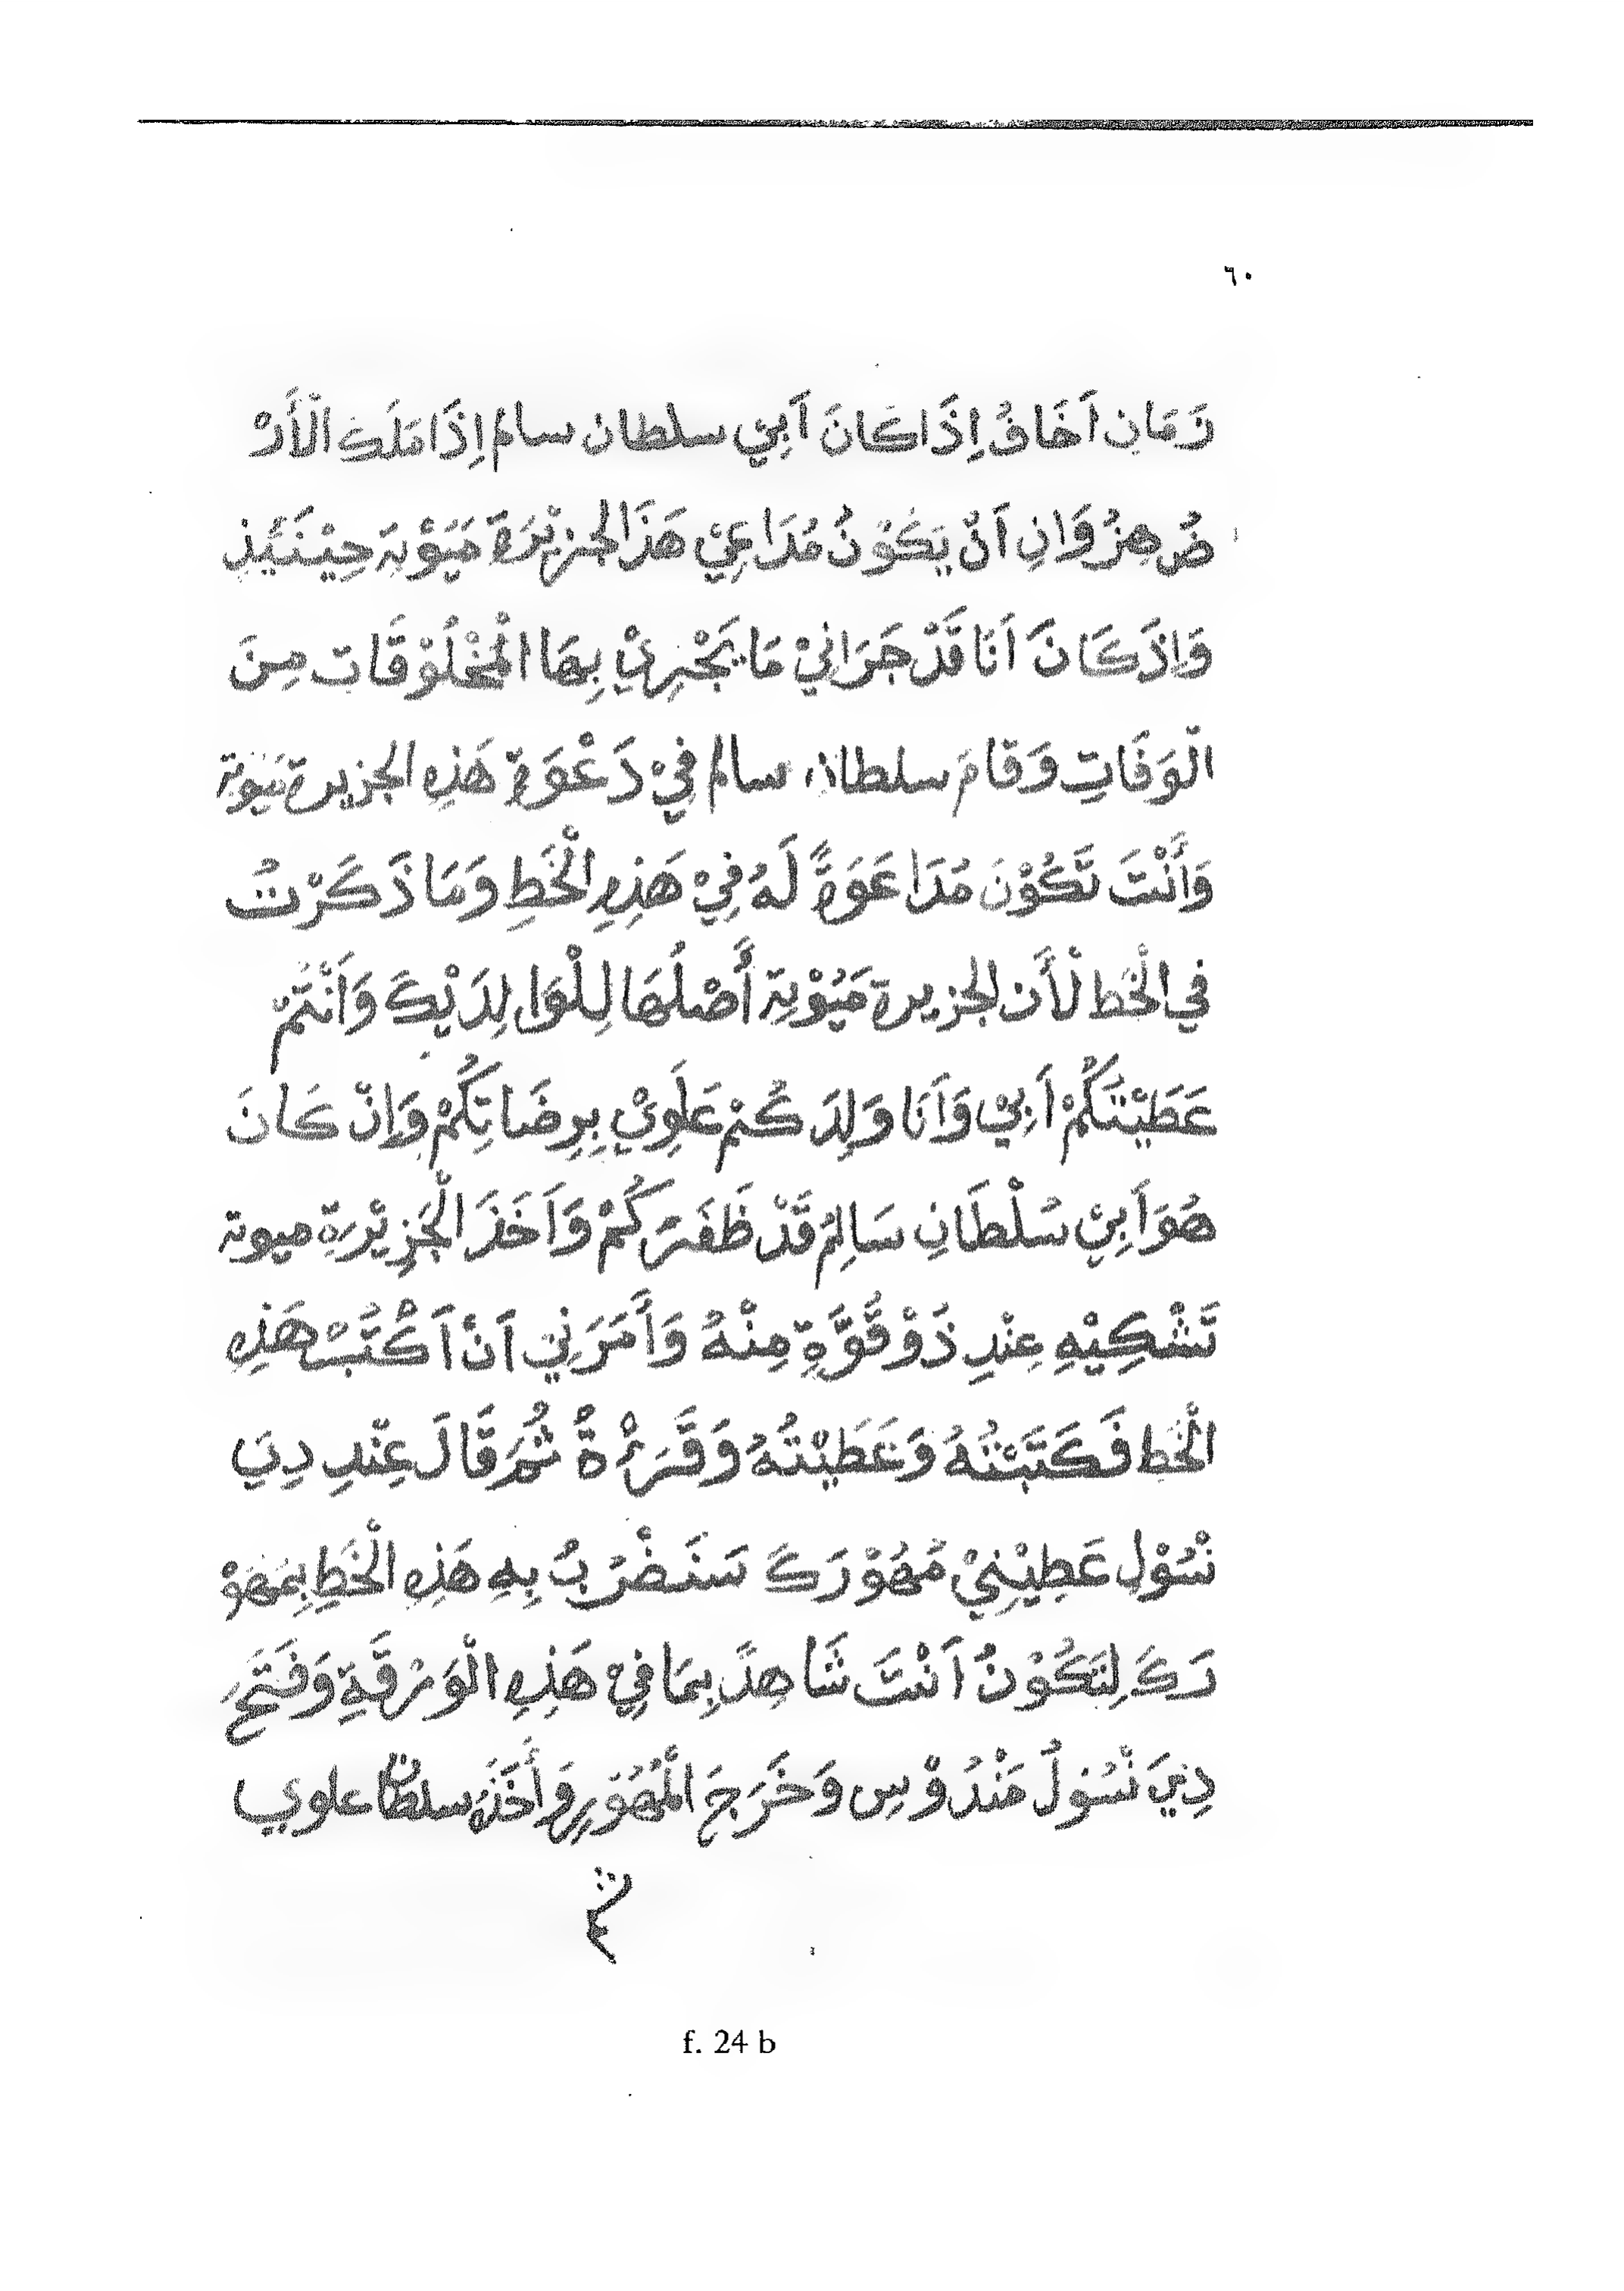 ٦٠
زَمَانِ اَخَافُ اِذَا كَانَ اَبِيْ سلطان سالم اِذَا مَلَكَ الْأَرْ
ضُ هِنْزُوَانِ اَنّ يَكُوْنُ مُدَاعِيْ هَذَا الجزِيْرَةِ مَيَوْتِه حِيْنَئِذٍ
وَاِذَ كَانَ اَنَا قَدْ جَرَانِيْ مَا يَجْرِيْ بِهَا الْمَخْلُوْقَاتِ مِنَ
الْوَفَاتِ وَقَامَ سلطان سالم فِيْ دَعْوَةِ هَذِهِ الجزيرة ميوتة
وَأَنْتَ تَكُوْنَ مُدَاعَوَةً لَهُ فِيْ هَذِهِ الْخَطِ وَمَا ذَكَرْتُ
في الْخَط لْأَن الجزيرة مَيُوْتِة أَصْلُهَا لِلْوَالِدَيْكَ وَاَنْتُمْ
عَطَيْتُكُمْ اَبِيْ وَاَنَا وَلِدَكُمْ عَلَوِيْ بِرِضَاتِكُمْ وَاِنْ كَانَ
هُوَ اَبِيْ سُلْطَانِ سَالِمُ قَدْ ظَفَرَكُمْ وَاَخَذَ الْجَزِيْرَةِ ميوتة
تَشْكِيْهِ عِنْدِ ذَوْ قُوَّةِ مِنْهُ وَأَمَرَنِي اَنْ اَكْتُبْ هَذِهِ
الْخَط فَكَتَبْتُهُ وَعَطَيْتُهُ وَقَرَءْهُ ثُمَّ قَالَ عِنْدِ دِيَ
نْسُوْلِ عَطِيْنِيْ مُهُوْرَكَ سَنَضْرُبُ بِهِ هَذِهِ الْخَطِ بِمَهُوْ
رَكَ لِتَكُوْنُ اَنْتَ شَاهِدً بِمَا فِيْ هَذِهِ الْوَرْقَةِ وَفَتَحَ
دِيَ نْسُوْلُ مَنْدُوْسِ وَخَرَجَ الْمُهُوْرِ وَأَخَذَهُ سلطان علوي
ثم
f. 24 b